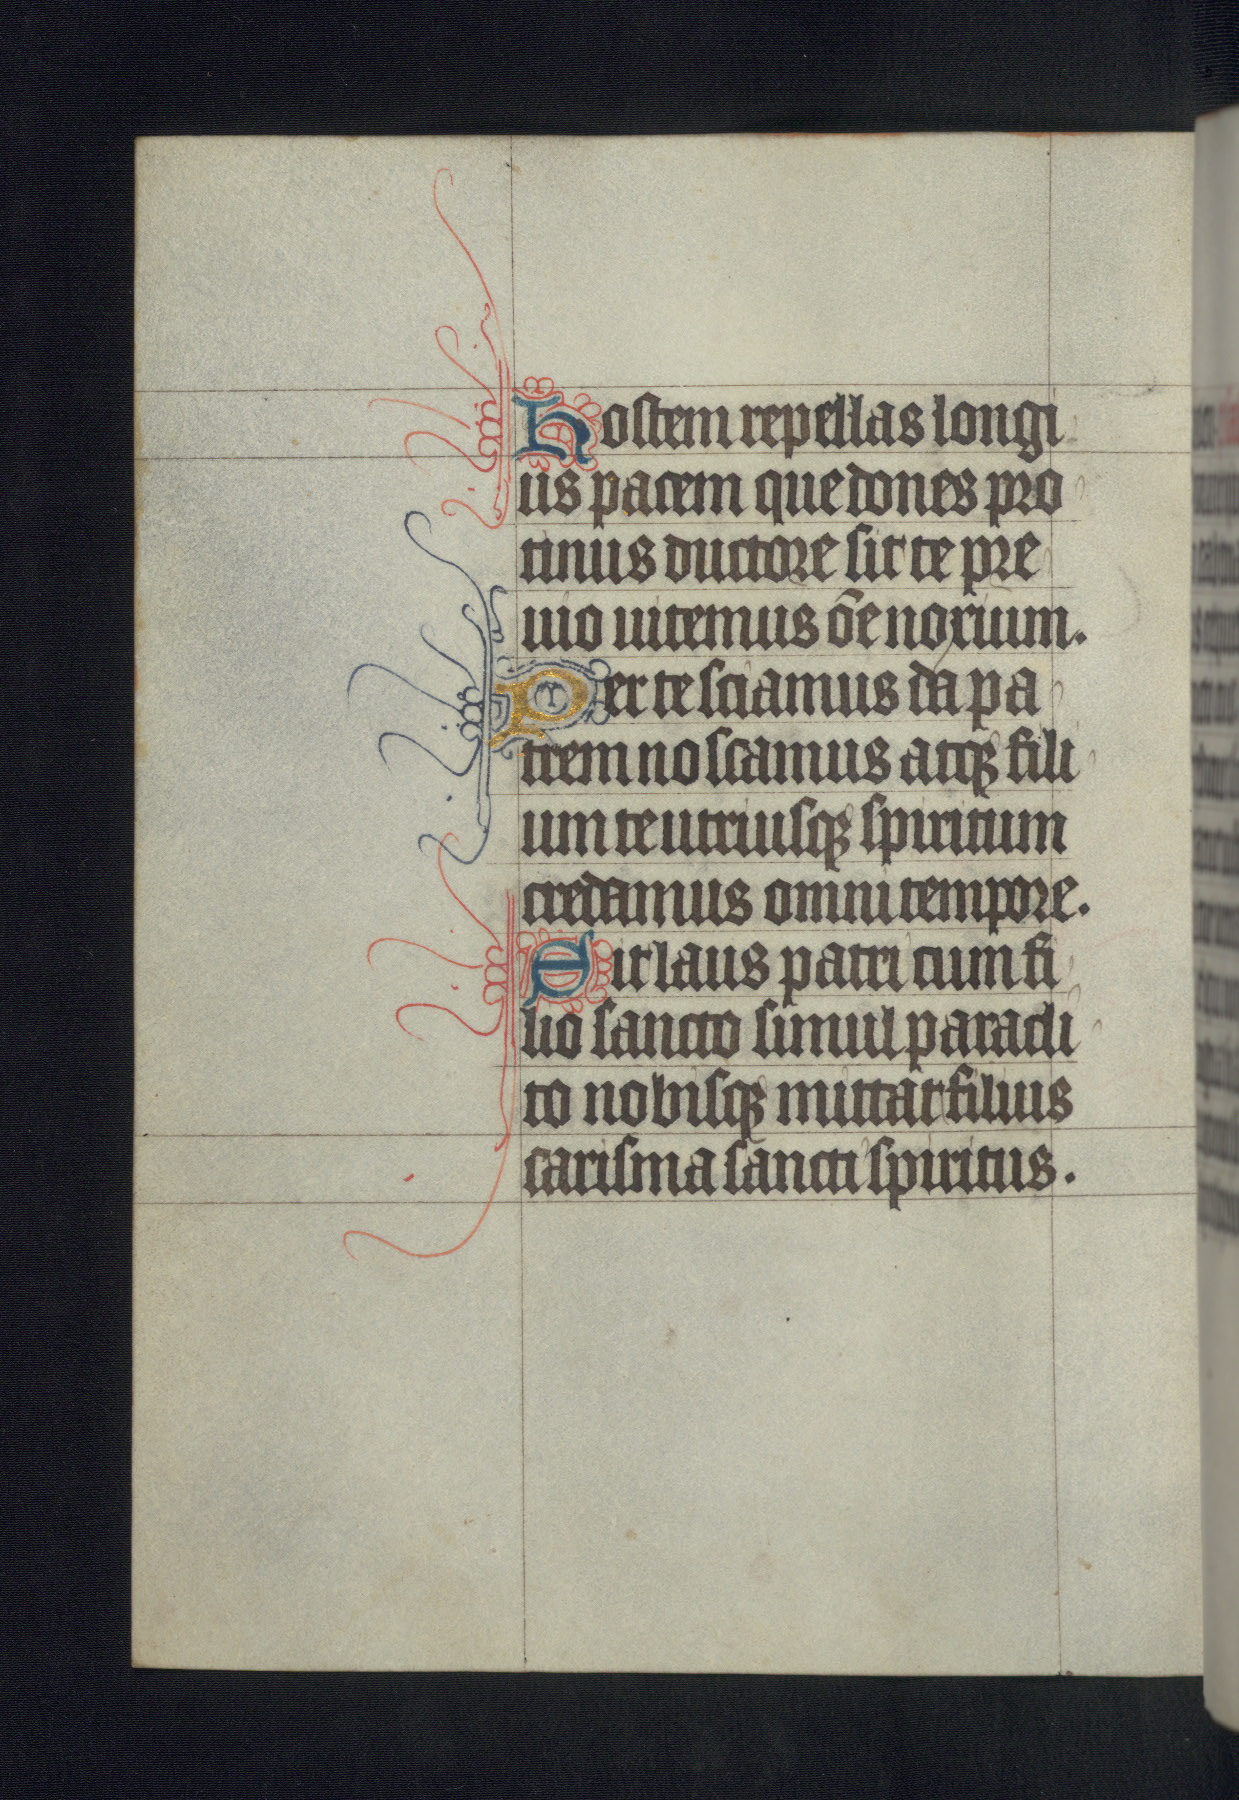 Hostem repellas longi
us pacem que dones pro
tinus ductore sic te pre
uio uitemus o͞e noxium.
Per te sciamus da pa
trem noscamus atqꝫ fili
um te utriusqꝫ spiritum
credamus omni tempore.
Sit laus patri cum fi
lio sancto simul paracli
to nobisqꝫ mittat filius
carisma sancti spiritus.